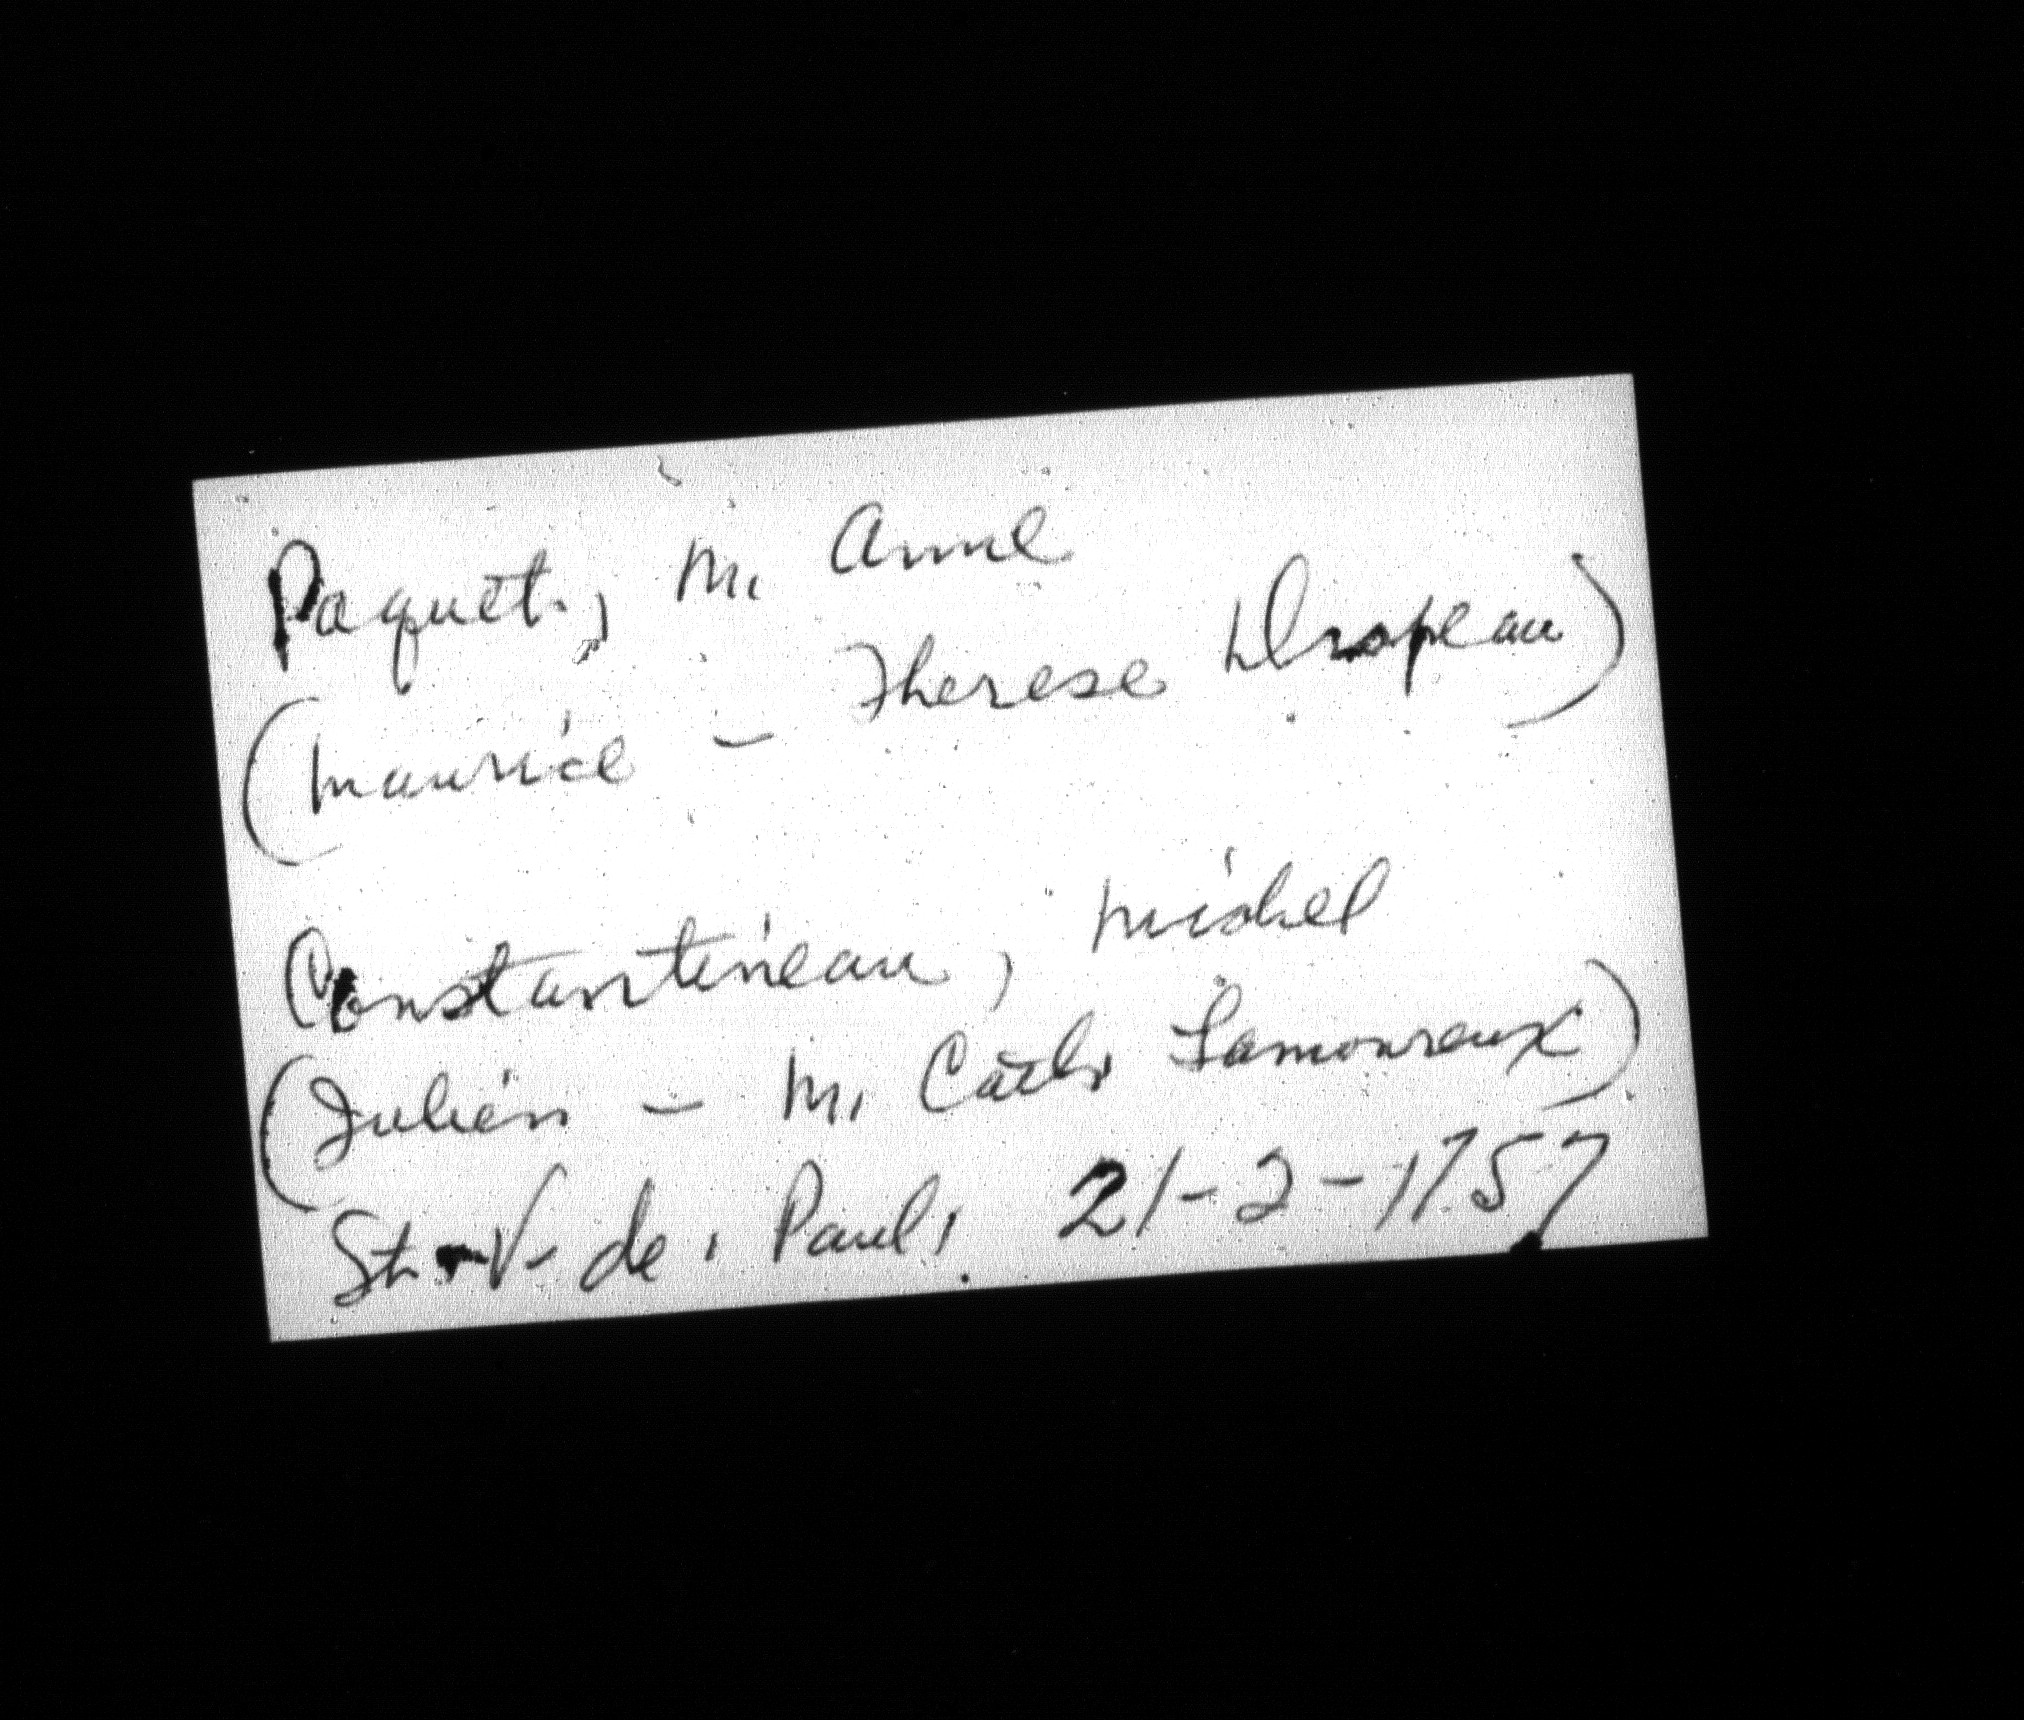 Paquet, M. Anne
(Maurice - Therese Drapeau)
Constantineau, Michel
(Julien - M. Cath. Lamoureux)
St-V- de. Paul, 21-2-1757